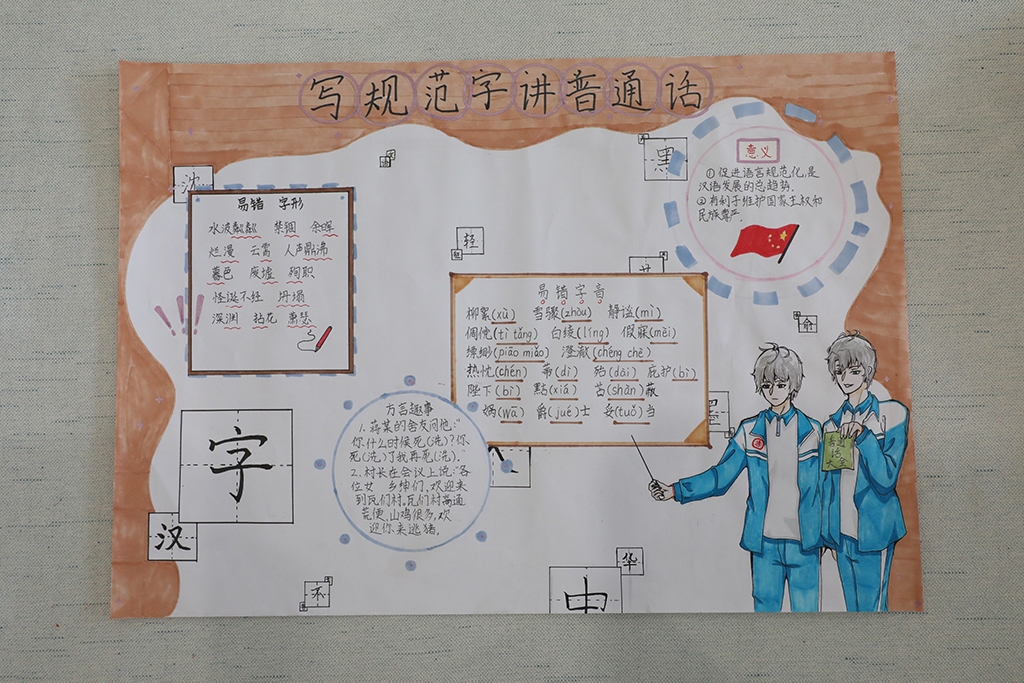 写规范字讲普通话
沈
易错 字形
水波粼粼 禁锢 余晖
烂漫 云霄 人声鼎沸
暮色 废墟 殉职
怪诞不经 坍塌
深渊 拈花 萧瑟
黑
意义
①促进语言规范化,是
汉语发展的总趋势.
②有利于维护国家主权和
民族尊严.
轻
俞
易错字音
柳絮(xù) 雪骤(zhòu) 静谧(mì)
倜傥(tì tǎng) 白绫(líng) 假寐(mèi)
缥缈(piāo miǎo) 澄澈(chéng chè)
热忱(chén) 蒂(dì) 殆(dài) 庇护(bì)
陛下(bì) 黠(xiá) 苫(shàn)蔽
娲(wā) 爵(jué)士 妥(tuǒ)当
方言趣事
1.蒋某的舍友问他:“
你什么时候死(洗)?你
死(洗)了我再死(洗).”
2.村长在会议上说:“各
位女 乡绅们,欢迎来
到瓦们村,瓦们村高通
荒便,山鸡很多,欢
迎你来逃猪.
字
汉
华
中